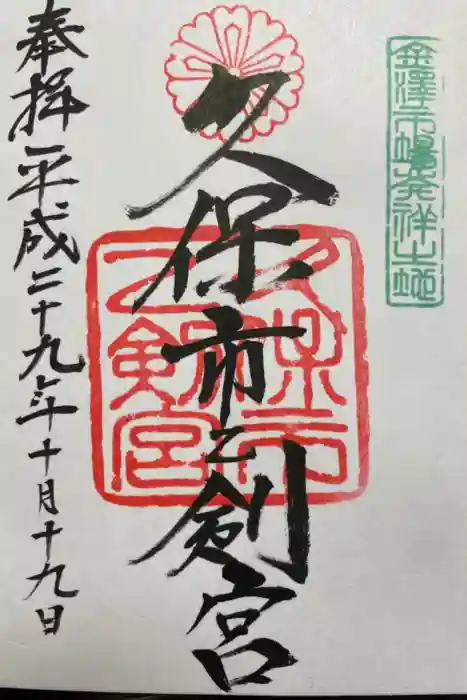 金澤市場発祥之地
久保市乙剣宮
久保市乙剣宮
奉拝 平成二十九年十月十九日